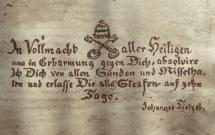 In Vollmacht aller Heiligen
und in Erbarmung gegen Dich, absolvire
ich Dich von allen Sünden und Misseha-
ten und erlasse Dir alle Strafen auf zehn
Tage.
Johannes Tetzel.